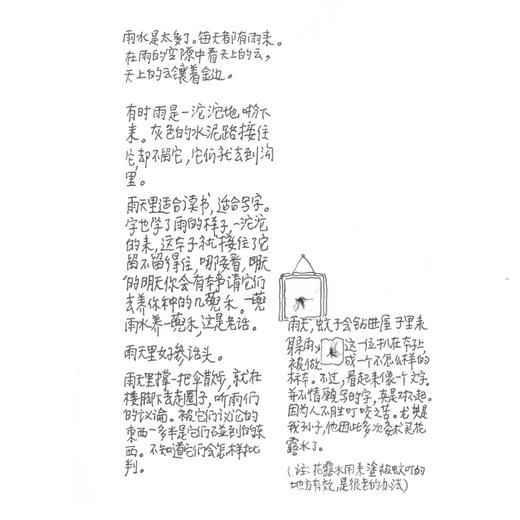 雨水是太多了。每天都有雨来。
在雨的空隙中看天上的云，
天上的云镶着金边。
有时雨是一沱沱地吩下
来。灰色的水泥路接住
它，却不留它，它们就去到沟
里。
雨天里适合读书，适合写字。
字也学了雨的样子，一沱沱
的来，这本子就接住了它
留不留得住，哪管，明天
的明天你会有本事请它们
去养你种的几蔸禾。一蔸
雨水养一蔸禾，这是老话。
雨天里好参话头。
雨天里撑一把伞散步，就在
楼脚下去走圈子，听雨们
的议论。被它们议论的
东西一多半是它们不砸到的东
西。不知道它们会怎样批
判。
雨天，蚊子会钻进屋子里来
躲雨，这一位扑在本子上
被做成一个不怎么样的
标本。不过，看起来像一个文字
并不情愿写的字，真是对不起。
因为人不甘叮咬之苦。尤其是
我孙子，他因此多次要求买花
露水了。
（注：花露水用来塗被蚊叮的
地方有效，是很老的办法）